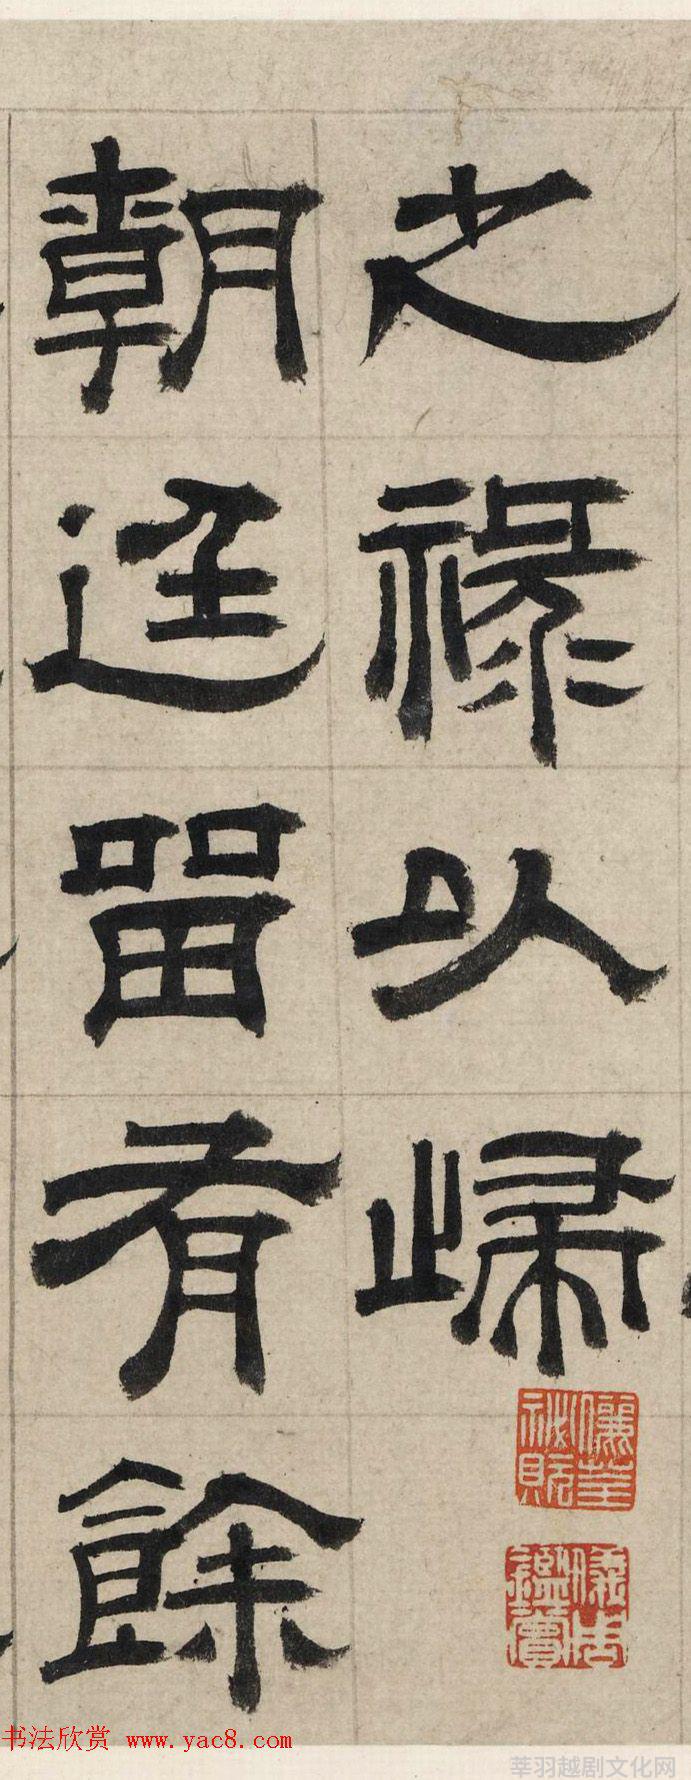 之祿以歸
朝廷留有餘
书法欣赏 www.yac8.com
莘羽越剧文化网